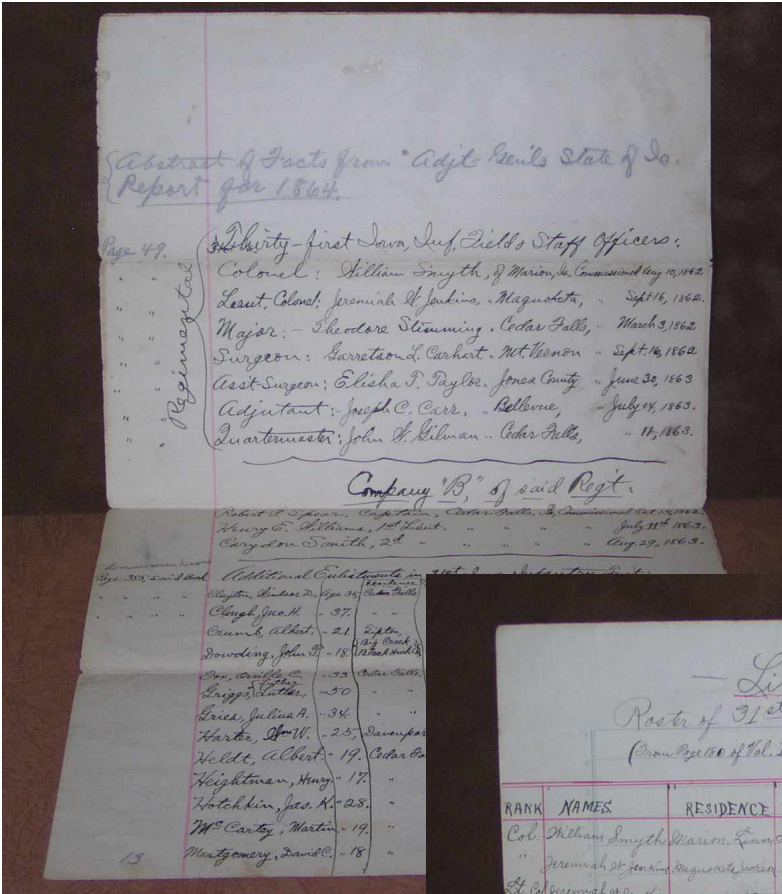 Abstract of Facts from "Adjt Genls State of Ia.
Report for 1864.
Page 49.
Thirty-first Iowa, Inf. Field & Staff Officers:
Regimental
Colonel: William Smyth, of Marion, Ia. Commissioned Aug 10, 1862
Lieut. Colonel: Jeremiah W. Jenkins, " Maquoketa, " Sept 16, 1862.
Major:- Theodore Stimming " Cedar Falls, " March 3, 1862
Surgeon: Garretson L. Carhart " Mt. Vernon " Sept. 16, 1862
Asst Surgeon: Elisha F. Taylor " Jones County " June 30, 1863
Adjutant: Joseph C. Carr, " Bellevue, " July 14, 1863.
Quartermaster: John W. Gilman " Cedar Falls, " " 11, 1863.
Company "B," of said Regt:
Robert P. Spear, Captain, Cedar Falls, Ia. Commissioned Oct 13, 1862.
Henry E. Williams, 1st Lieut. " " " " July 11th 1863.
Corydon Smith, 2d " " " " " Aug. 29, 1863.
Page 353, said Book
Additional Enlistments in 31st
Residence
Clayton, Windsor D. Age 35, Cedar Falls
Clough, Jno. H. " 37. " "
Crumb, Albert. " 21. Tipton,
Dowding, John T. " 18. Big Creek B'lack Hawk Co
Fox, Orville C. " 33 Cedar Falls,
Griggs, Luther, " 50 " "
Gries, Julius A. " 34. "
Harter, Wm W. " 25, Davenpor
Heldt, Albert. " 19. Cedar Fa
Heightman, Henry " 17. "
Hotchkin, Jas. K. " 28. "
McCartey, Martin " 19. "
Montgomery, David C. " 18 "
13
Li
Roster of 31st
(From Page 180 of Vol.
RANK NAMES. RESIDENCE
Col. William Smyth Marion, Linn C
" Jeremiah W Jenkins Maquoketa,
Lt. Col Jeremiah W